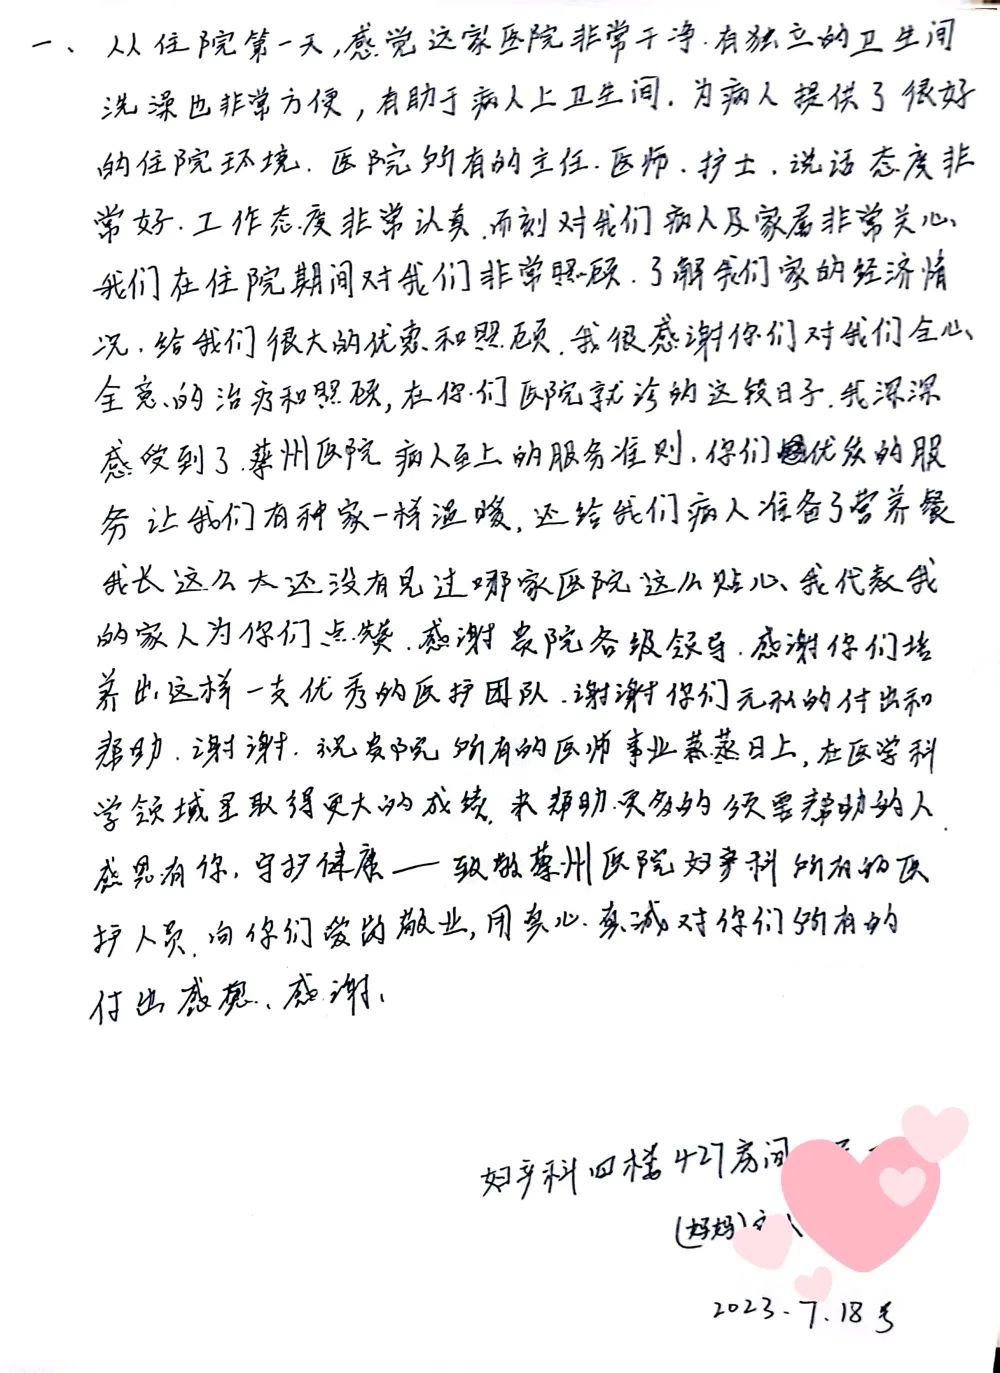 一、从住院第一天,感觉这家医院非常干净.有独立的卫生间
洗澡也非常方便,有助于病人上卫生间.为病人提供了很好
的住院环境.医院所有的主任.医师.护士.说话态度非
常好.工作态度非常认真.而刻对我们病人及家属非常关心、
我们在住院期间对我们非常照顾.了解我们家的经济情
况.给我们很大的优惠和照顾.我很感谢你们对我们全心、
全意的治疗和照顾,在你们医院就诊的这段日子.我深深
感受到了.蔡州医院病人至上的服务准则.你们优质的服
务让我们有种家一样温暖,还给我们病人准备了营养餐
我长这么大还没有见过哪家医院这么贴心、我代表我
的家人为你们点赞.感谢贵院各级领导.感谢你们培
养出这样一支优秀的医护团队.谢谢你们无私的付出和
帮助.谢谢.祝贵院所有的医师事业蒸蒸日上,在医学科
学领域里取得更大的成绩,来帮助更多的须要帮助的人.
感恩有你.守护健康——致敬蔡州医院妇产科所有的医
护人员.向你们爱岗敬业,用真心.真诚对你们所有的
付出感恩、感谢、
妇产科四楼427房间
(妈妈)
2023.7.18号